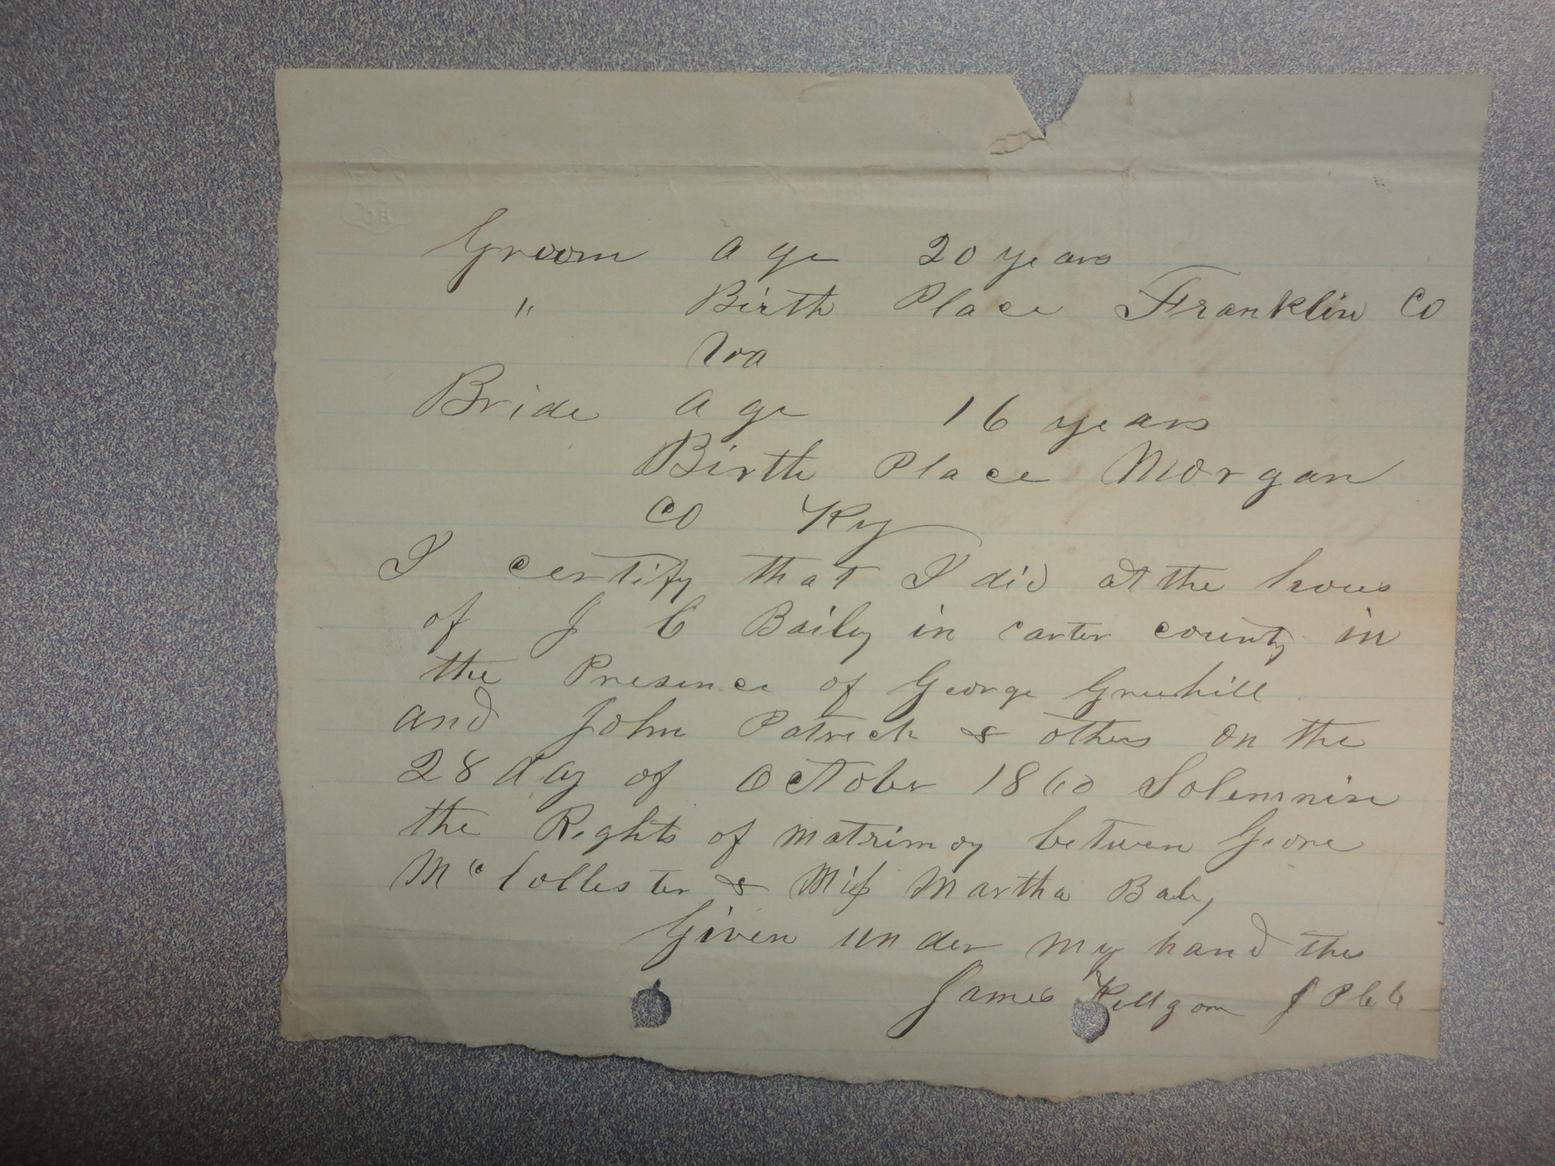 Groom age 20 years
" Birth Place Franklin Co
Va
Bride age 16 years
Birth Place Morgan
Co Ky
I certify that I did at the hous
of J C Baily in carter county in
the Presence of George Greenhill
and John Patrick & others on the
28 day of October 1860 Solemnise
the Rights of matrimoy between
McCollister & Miss Martha Baly
Given under my hand this
James Kellgom J P C C